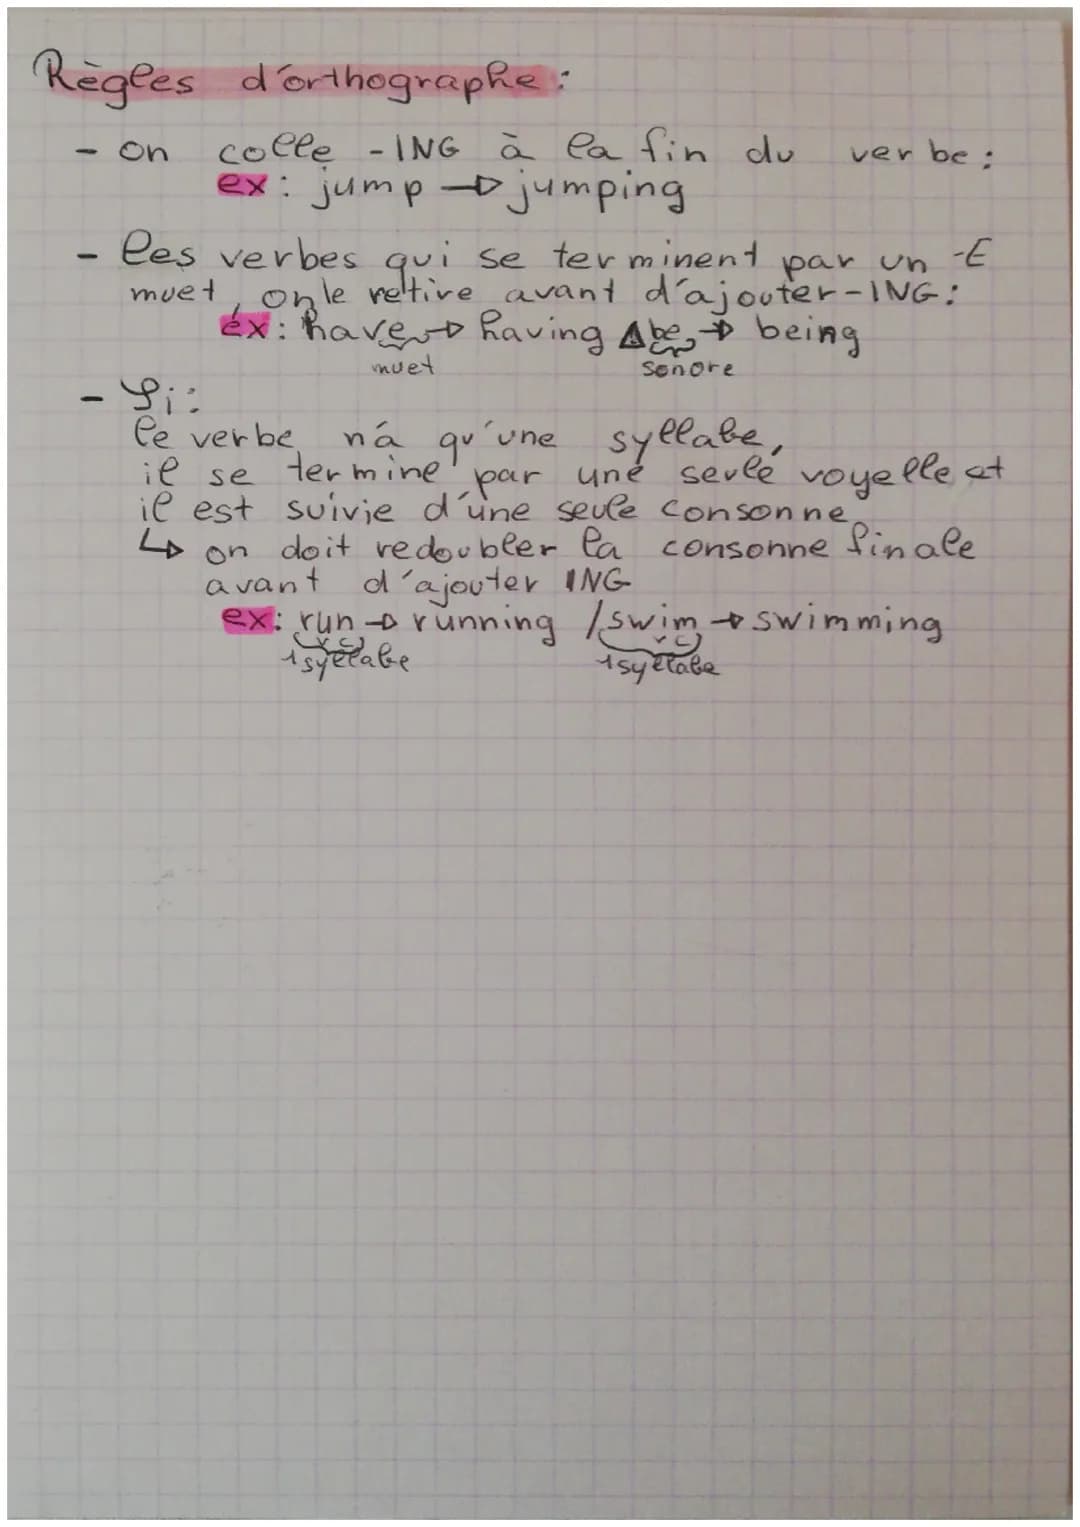 Règles d'orthographe :
- on colle -ING à la fin du verbe :
ex : jump → jumping
- les verbes qui se terminent par un -E
muet, on le retire avant d'ajouter -ING :
ex : have → having ⚠ be → being
muet sonore
- Si :
le verbe n'a qu'une syllabe,
il se termine par une seule voyelle et
il est suivie d'une seule consonne
↳ on doit redoubler la consonne finale
avant d'ajouter ING
ex : run → running / swim → swimming
v c v c
1 syllabe 1 syllabe